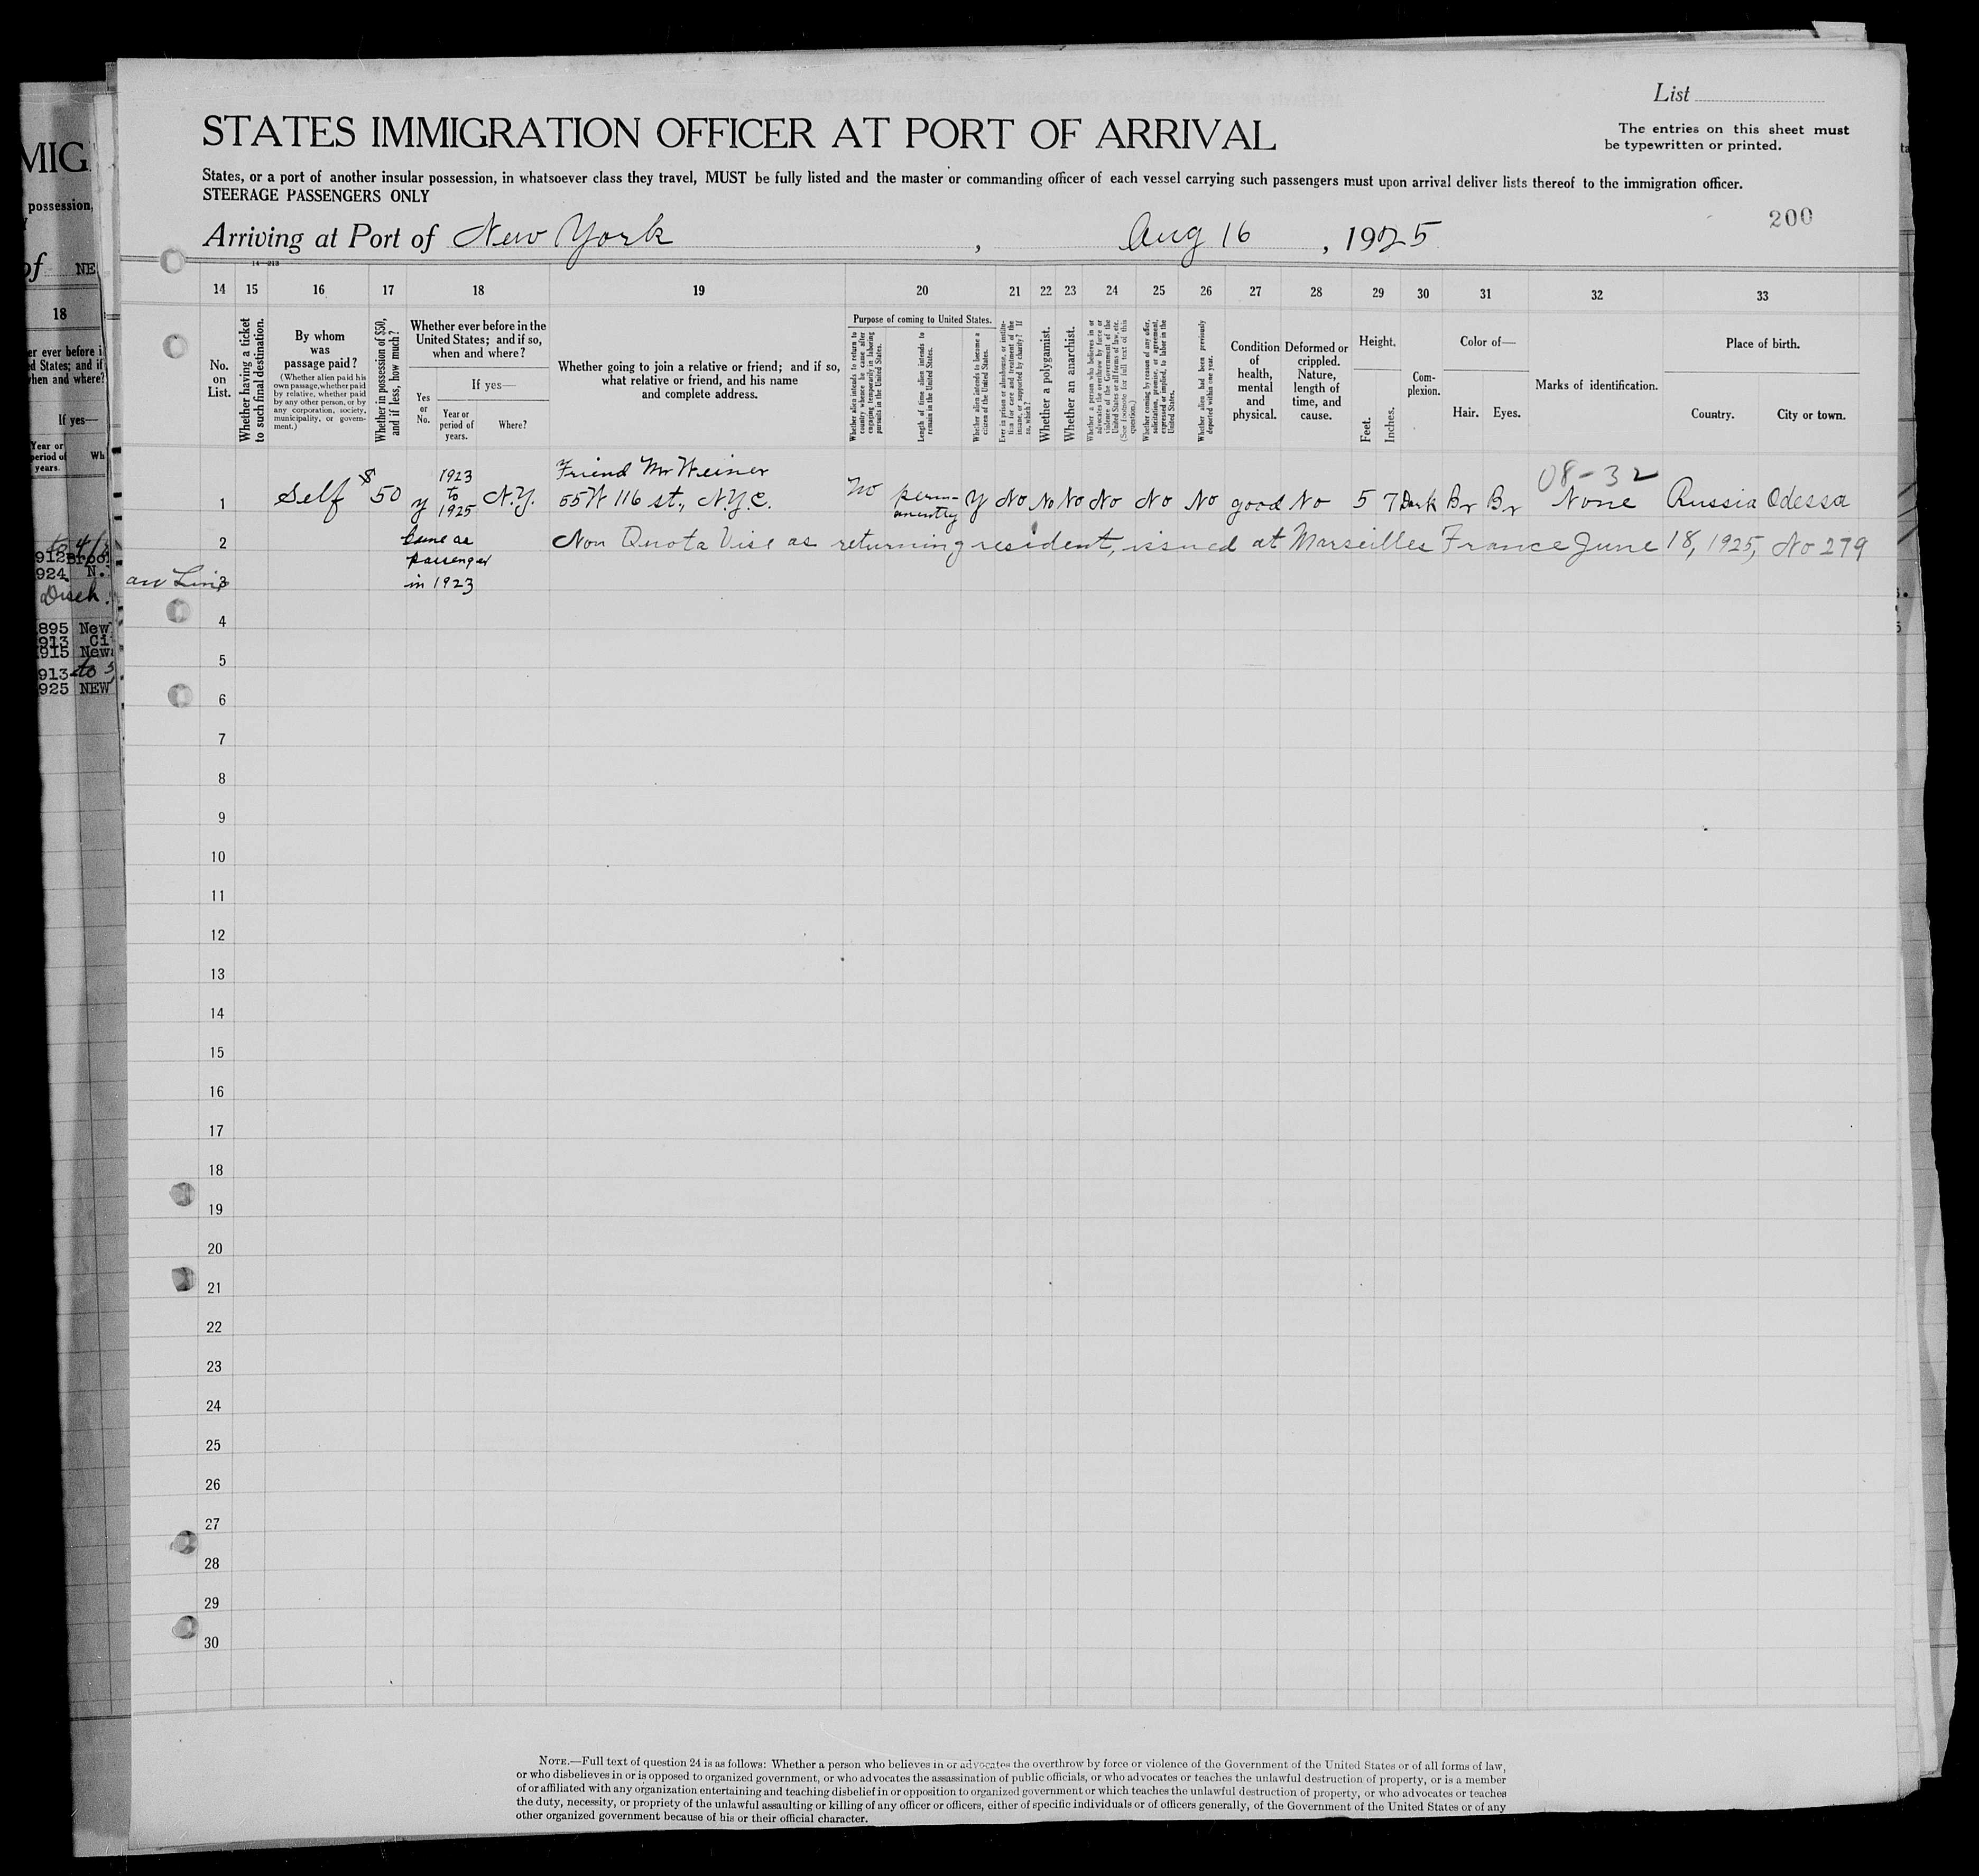 List
STATES IMMIGRATION OFFICER AT PORT OF ARRIVAL
The entries on this sheet must
be typewritten or printed.
States, or a port of another insular possession, in whatsoever class they travel, MUST be fully listed and the master or commanding officer of each vessel carrying such passengers must upon arrival deliver lists thereof to the immigration officer.
STEERAGE PASSENGERS ONLY
200
Arriving at Port of New York, Aug 16, 1925
14—213
14 15 16 17 18 19 20 21 22 23 24 25 26 27 28 29 30 31 32 33
No. on List.
Whether having a ticket to such final destination.
By whom was passage paid?
(Whether alien paid his own passage, whether paid by relative, whether paid by any other person, or by any corporation, society, municipality, or government.)
Whether in possession of $50, and if less, how much?
Whether ever before in the United States; and if so, when and where?
Yes or No.
If yes—
Year or period of years.
Where?
Whether going to join a relative or friend; and if so, what relative or friend, and his name and complete address.
Purpose of coming to United States.
Whether alien intends to return to country whence he came after engaging temporarily in laboring pursuits in the United States.
Length of time alien intends to remain in the United States.
Whether alien intends to become a citizen of the United States.
Ever in prison or almshouse, or institution for care and treatment of the insane, or supported by charity? If so, which?
Whether a polygamist.
Whether an anarchist.
Whether a person who believes in or advocates the overthrow by force or violence of the Government of the United States or all forms of law, etc. (See footnote for full text of this question.)
Whether coming by reason of any offer, solicitation, promise, or agreement, expressed or implied, to labor in the United States.
Whether alien had been previously deported within one year.
Condition of health, mental and physical.
Deformed or crippled. Nature, length of time, and cause.
Height.
Feet. Inches.
Complexion.
Color of—
Hair. Eyes.
Marks of identification.
Place of birth.
Country. City or town.
08-32
1 Self $50 y 1923 to 1925 N.Y. Friend Mr Weiner 55 W 116 st., N.Y.C. No permanently y No No No No No No good No 5 7 Dark Br Br None Russia Odessa
2 Came as passenger in 1923 Non Quota Vise as returning resident, issued at Marseilles France June 18, 1925, No 279
3
4
5
6
7
8
9
10
11
12
13
14
15
16
17
18
19
20
21
22
23
24
25
26
27
28
29
30
NOTE.—Full text of question 24 is as follows: Whether a person who believes in or advocates the overthrow by force or violence of the Government of the United States or of all forms of law,
or who disbelieves in or is opposed to organized government, or who advocates the assassination of public officials, or who advocates or teaches the unlawful destruction of property, or is a member
of or affiliated with any organization entertaining and teaching disbelief in or opposition to organized government or which teaches the unlawful destruction of property, or who advocates or teaches
the duty, necessity, or propriety of the unlawful assaulting or killing of any officer or officers, either of specific individuals or of officers generally, of the Government of the United States or of any
other organized government because of his or their official character.